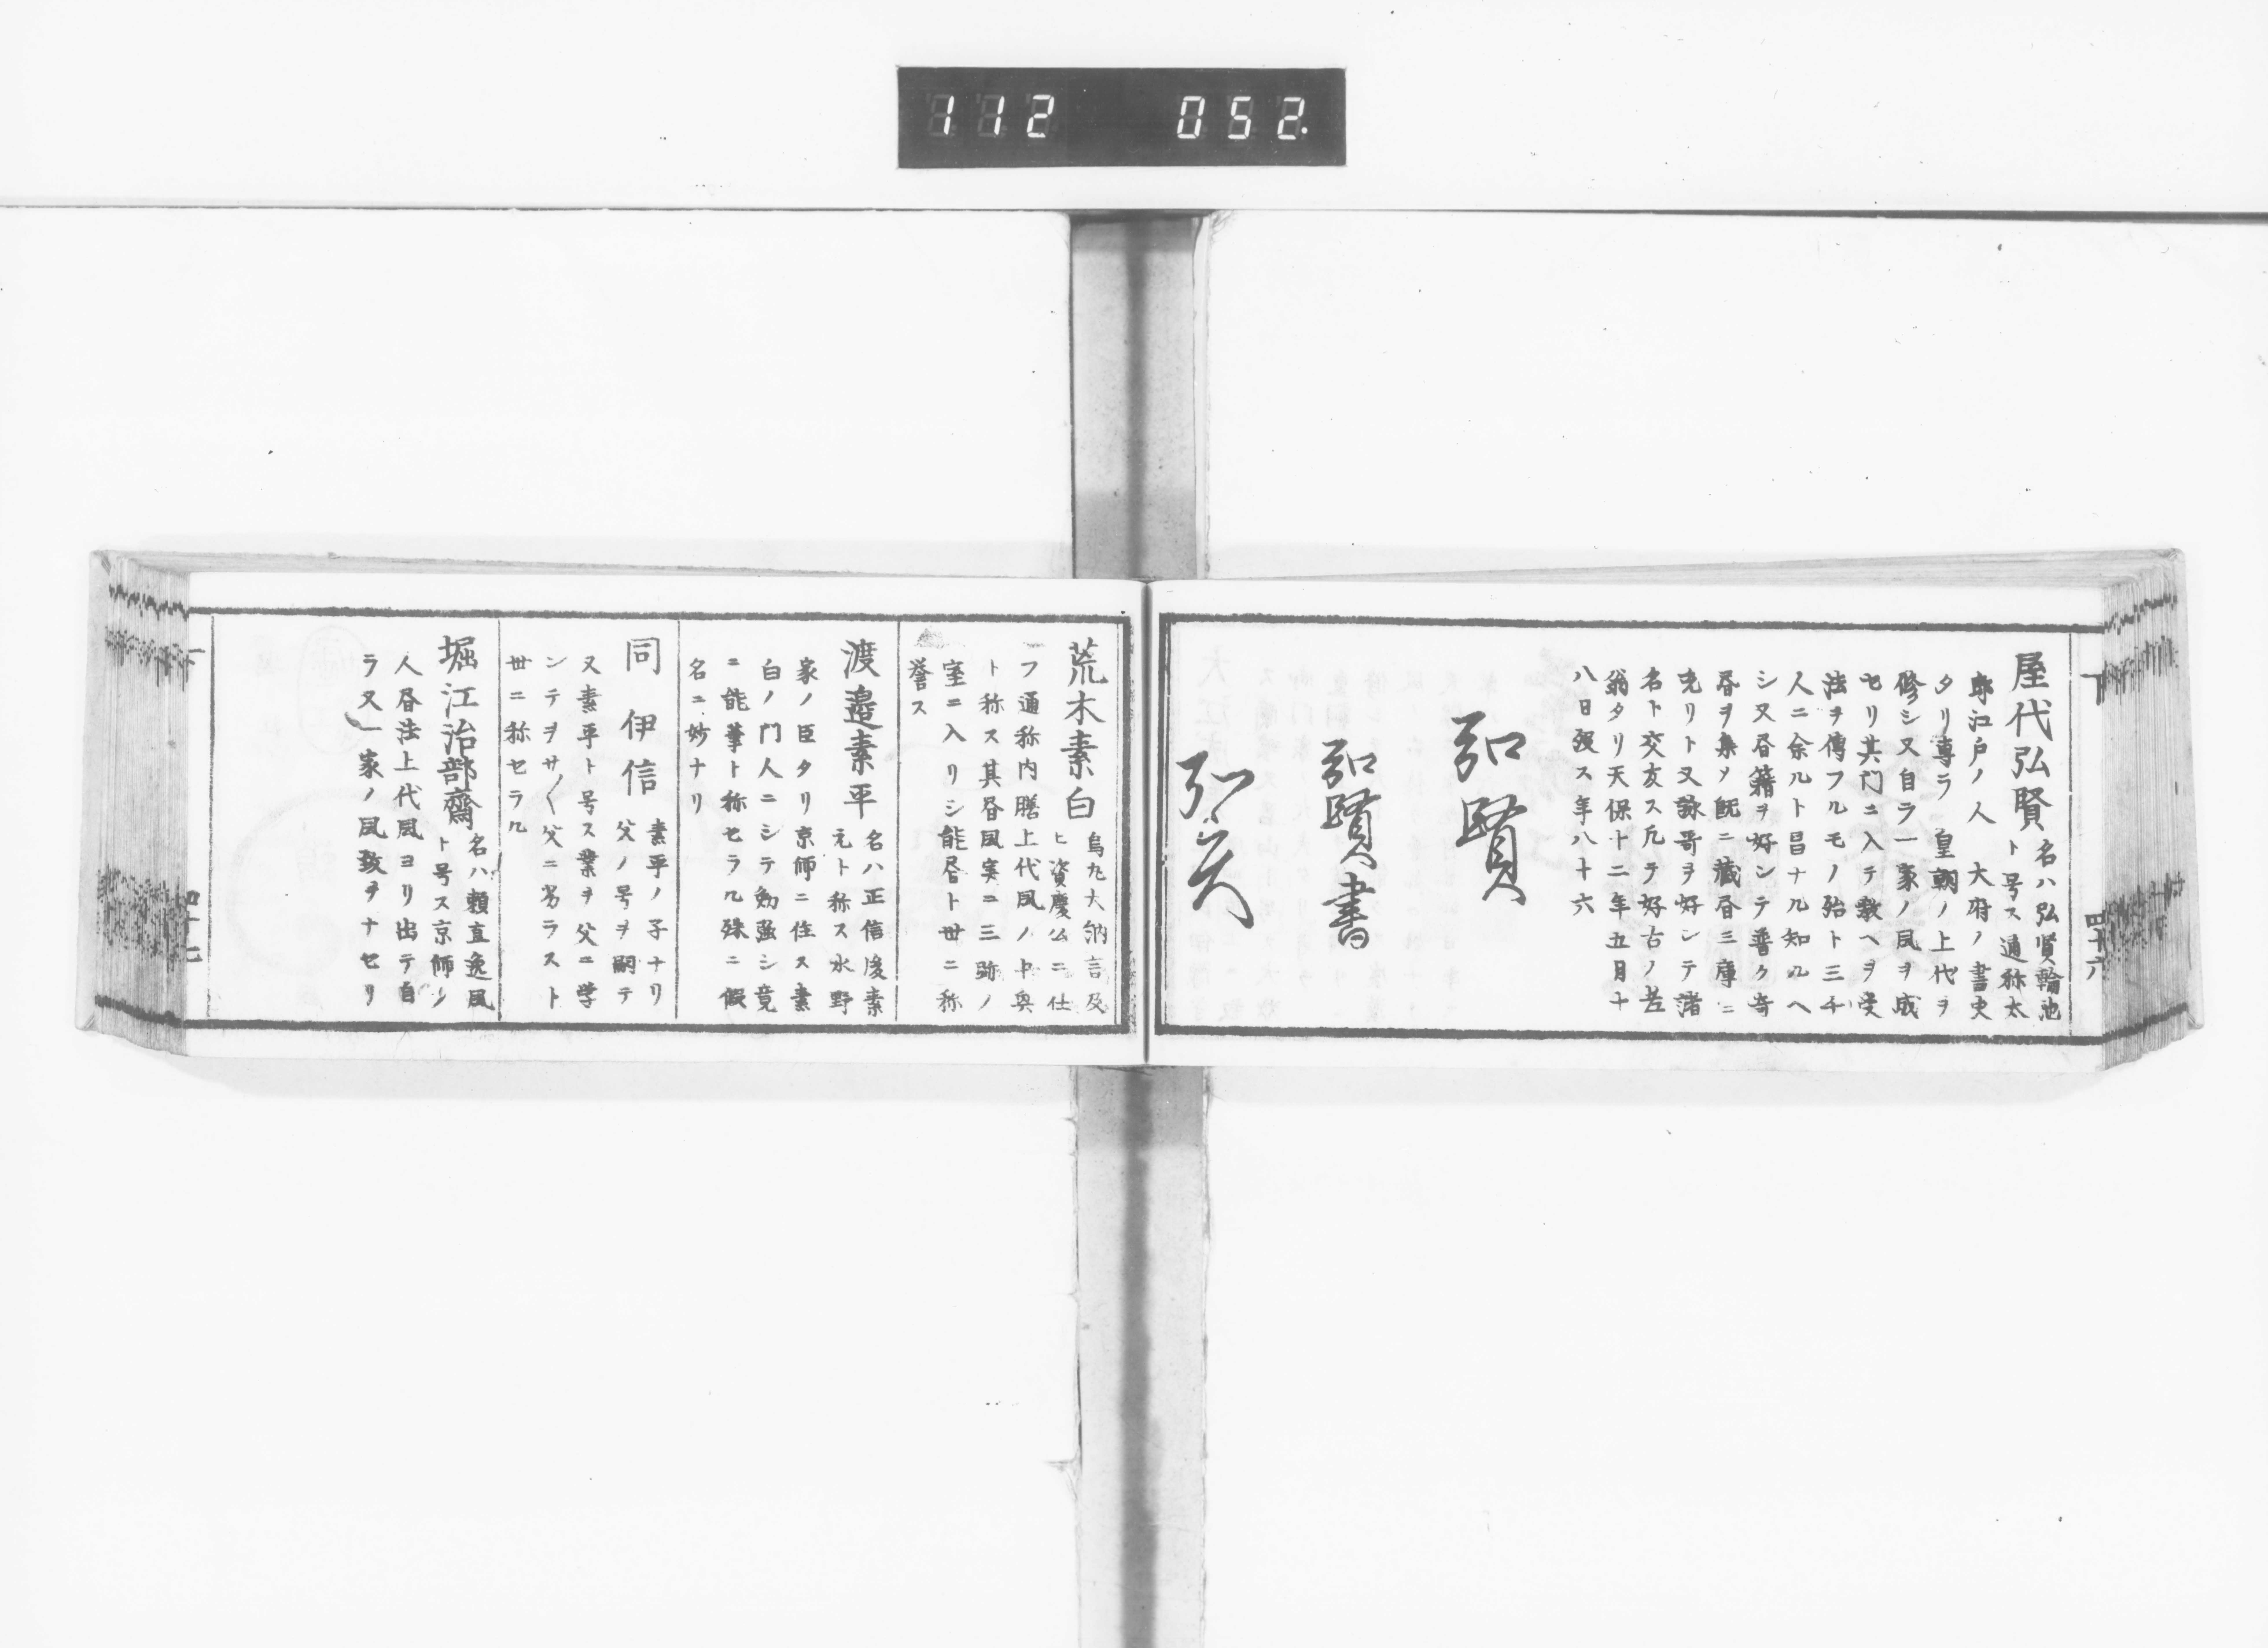 112 052
屋代弘賢 名ハ弘賢輪池
ト号ス通称太
郎江戸ノ人 大府ノ書史
タリ専ラ 皇朝ノ上代ヲ
修シ又自ラ一家ノ風ヲ成
セリ其門ニ入テ教ヘヲ受
法ヲ傳フルモノ殆ト三千
人ニ余ルト昌ナル知ルヘ
シ又昏籍ヲ好ンテ普ク奇
昏ヲ集メ既ニ蔵昏三庫ニ
充リト又詠哥ヲ好ンテ諸
名ト交友ス凡テ好古ノ
翁タリ天保十二年五月十
八日歿ス年八十六
弘賢
弘賢書
弘賢
下
四十六
荒木素白 烏丸大納言及
ヒ資慶公ニ仕
フ通称内膳上代風ノ中興
ト称ス其昏風実ニ三弥ノ
室ニ入リシ能昏ト世ニ称
誉ス
渡邉素平 名ハ正信後素
元ト称ス水野
家ノ臣タリ京師ニ住ス素
白ノ門人ニシテ勉強シ竟
ニ能筆ト称セラル殊ニ假
名ニ妙ナリ
同 伊信 素平ノ子ナリ
父ノ号ヲ嗣テ
又素平ト号ス業ヲ父ニ学
ンテヲサ〱父ニ劣ラスト
世ニ称セラル
堀江治部齋 名ハ頼直逸風
ト号ス京師ノ
人昏法上代風ヨリ出テ自
ラ又一家ノ風致ヲナセリ
四十七